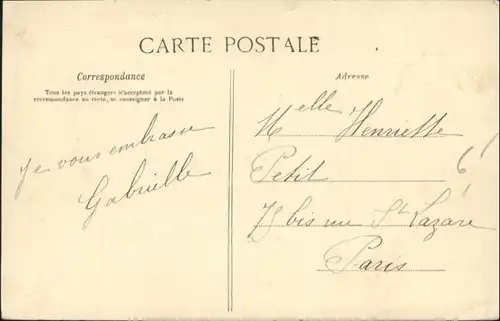 CARTE POSTALE
Correspondance
Tous les pays étrangers n'acceptent pas la
correspondance au recto, se renseigner à la Poste
Je vous embrasse
Gabrielle
Adresse
Melle Henriette
Petit
bis rue St Lazare
Paris